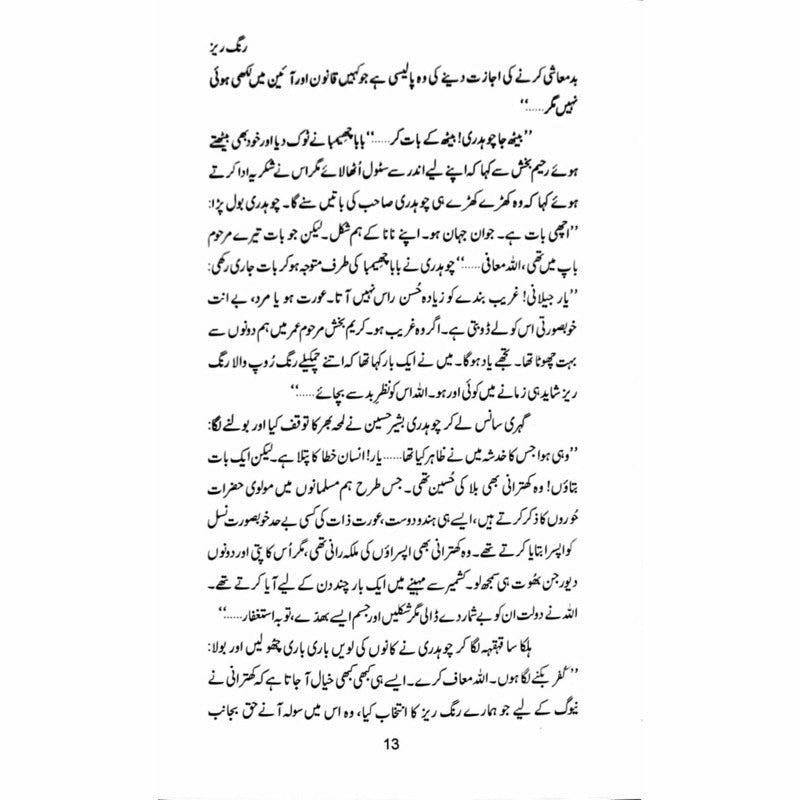 رنگ ریز
بدمعاشی کرنے کی اجازت دینے کی وہ پالیسی ہے جو کہیں قانون اور آئین میں لکھی ہوئی
نہیں مگر……‘‘
’’بیٹھ جا چوہدری! بیٹھ کے بات کر……‘‘ بابا چھیمبا نے ٹوک دیا اور خود بھی بیٹھتے
ہوئے رحیم بخش سے کہا کہ اپنے لیے اندر سے سٹول اُٹھا لائے مگر اس نے شکریہ ادا کرتے
ہوئے کہا کہ وہ کھڑے کھڑے ہی چوہدری صاحب کی باتیں سنے گا۔ چوہدری بول پڑا:
’’اچھی بات ہے۔ جوان جہان ہو۔ اپنے نانا کے ہم شکل۔ لیکن جو بات تیرے مرحوم
باپ میں تھی، اللہ معافی……‘‘ چوہدری نے بابا چھیمبا کی طرف متوجہ ہو کر بات جاری رکھی:
’’یار جیلانی! غریب بندے کو زیادہ حُسن راس نہیں آتا۔ عورت ہو یا مرد، بے انت
خوبصورتی اس کو لے ڈوبتی ہے۔ اگر وہ غریب ہو۔ کریم بخش مرحوم عمر میں ہم دونوں سے
بہت چھوٹا تھا۔ تجھے یاد ہو گا۔ میں نے ایک بار کہا تھا کہ اتنے چمکیلے رنگ رُوپ والا رنگ
ریز شاید ہی زمانے میں کوئی اور ہو۔ اللہ اس کو نظرِ بد سے بچائے……‘‘
گہری سانس لے کر چوہدری بشیر حسین نے لمحہ بھر کا توقف کیا اور بولنے لگا:
’’وہی ہوا جس کا خدشہ میں نے ظاہر کیا تھا……یار! انسان خطا کا پتلا ہے۔ لیکن ایک بات
بتاؤں! وہ کھترانی بھی بلا کی حُسین تھی۔ جس طرح ہم مسلمانوں میں مولوی حضرات
حُوروں کا ذکر کرتے ہیں، ایسے ہی ہندو دوست، عورت ذات کی کسی بے حد خوبصورت نسل
کو اپسرا بتایا کرتے تھے۔ وہ کھترانی بھی اپسراؤں کی ملکہ رانی تھی، مگر اُس کا پتی اور دونوں
دیور جن بھُوت ہی سمجھ لو۔ کشمیر سے مہینے میں ایک بار چند دن کے لیے آیا کرتے تھے۔
اللہ نے دولت ان کو بے شمار دے ڈالی مگر شکلیں اور جسم ایسے بھدّے، توبہ استغفار……‘‘
ہلکا سا قہقہہ لگا کر چوہدری نے کانوں کی لویں باری باری چھو لیں اور بولا:
’’کُفر بکنے لگا ہوں۔ اللہ معاف کرے۔ ایسے ہی کبھی کبھی خیال آ جاتا ہے کہ کھترانی نے
نیوگ کے لیے جو ہمارے رنگ ریز کا انتخاب کیا، وہ اس میں سولہ آنے حق بجانب
13